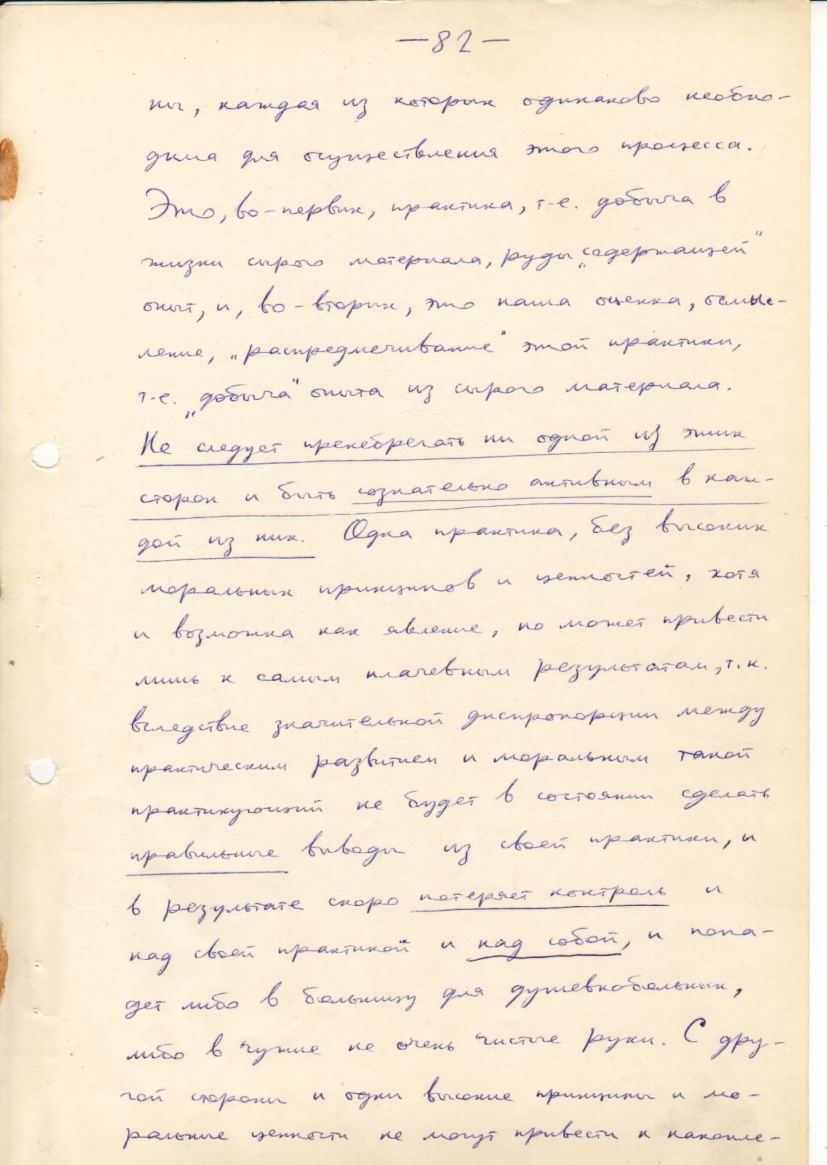 —82—
ны, каждая из которых одинаково необхо-
дима для осуществления этого процесса.
Это, во-первых, практика, т.е. добыча в
жизни сырого материала, руды „содержащей"
опыт, и, во-вторых, это наша оценка, осмыс-
ление, „распредмечивание" этой практики,
т.е. „добыча" опыта из сырого материала.
Не следует пренебрегать ни одной из этих
сторон и быть сознательно активным в каж-
дой из них. Одна практика, без высоких
моральных принципов и ценностей, хотя
и возможна как явление, но может привести
лишь к самым плачевным результатам, т.к.
вследствие значительной диспропорции между
практическим развитием и моральным такой
практикующий не будет в состоянии сделать
правильные выводы из своей практики, и
в результате скоро потеряет контроль и
над своей практикой и над собой, и попа-
дет либо в больницу для душевнобольных,
либо в чужие не очень чистые руки. С дру-
гой стороны и одни высокие принципы и мо-
ральные ценности не могут привести к накопле-